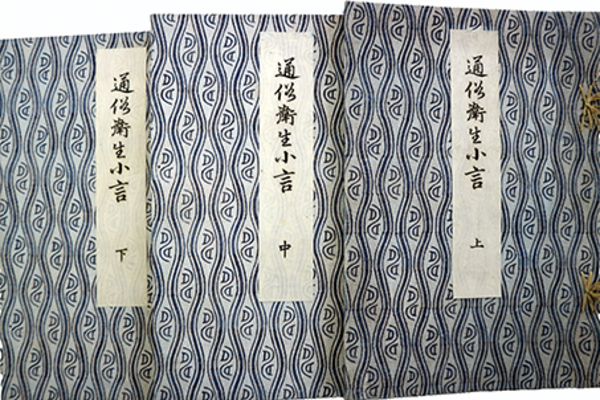 通俗衛生小言 上
通俗衛生小言 中
通俗衛生小言 下